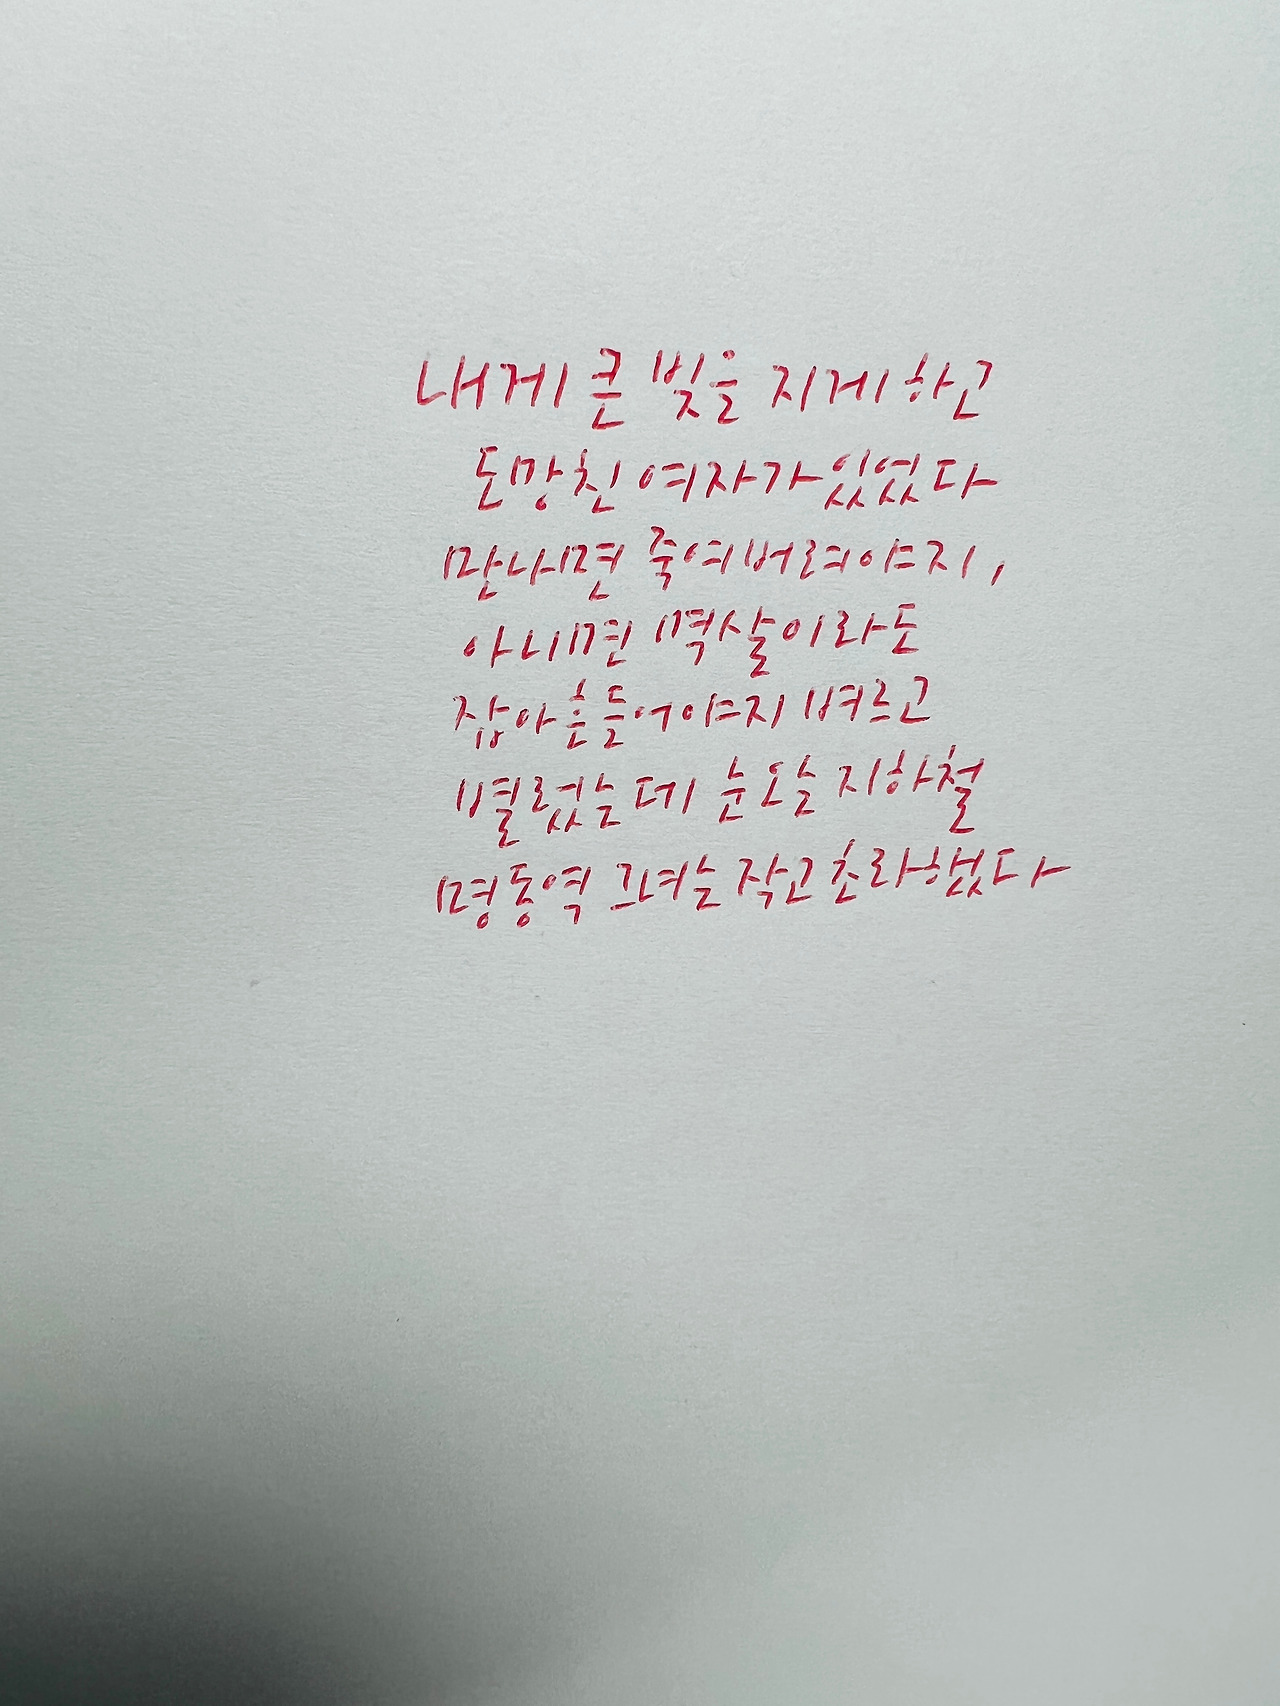 내게 큰 빚을 지게 하고
도망친 여자가 있었다
만나면 죽여버려야지,
아니면 멱살이라도
잡아 흔들어야지 벼르고
별렀는데 눈 오는 지하철
명동역 그녀는 작고 초라했다